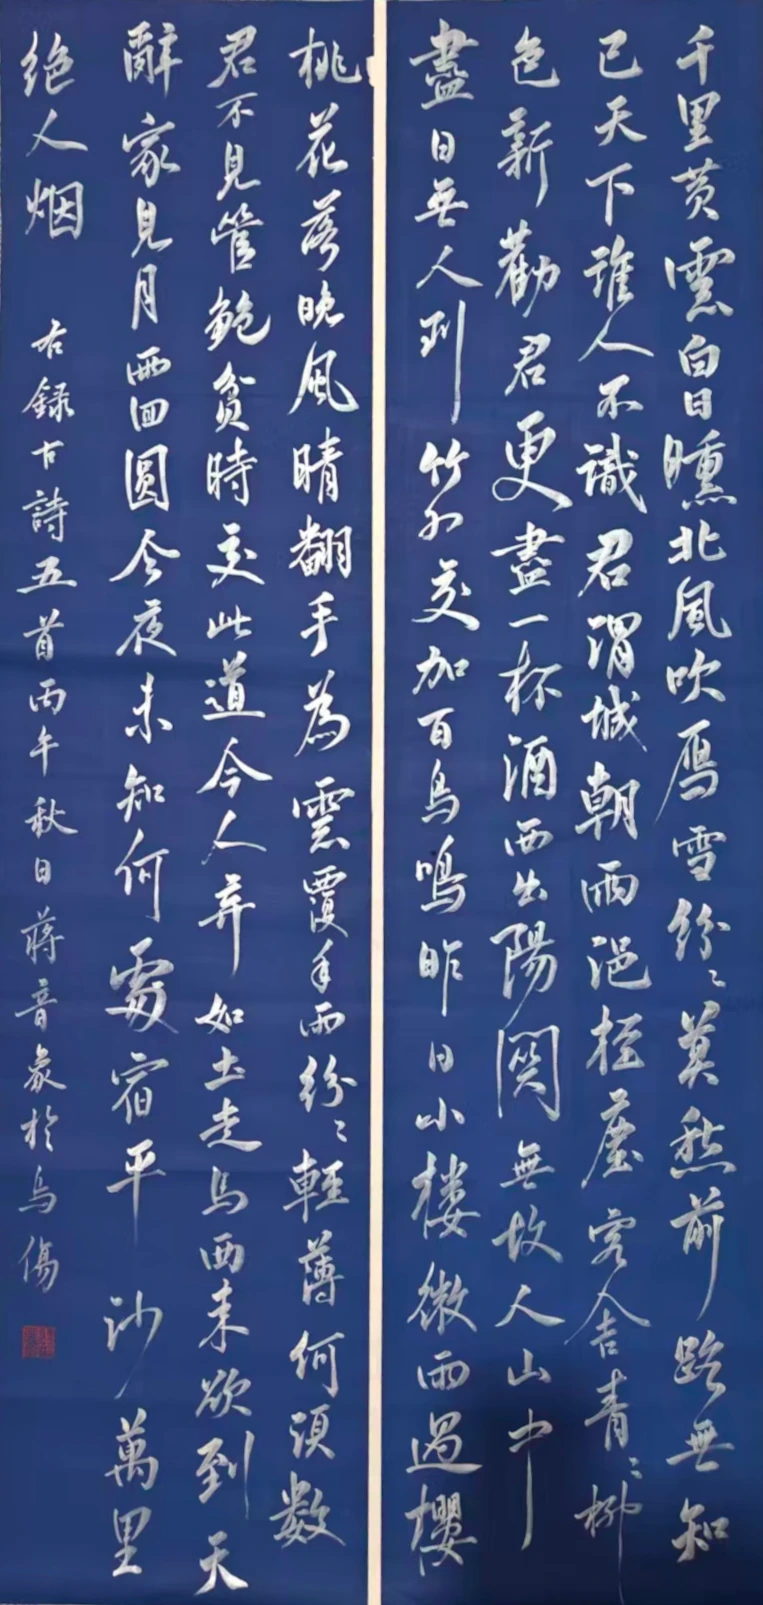 千里黄雲白日曛北風吹雁雪紛〻莫愁前路無知
己天下誰人不識君渭城朝雨浥輕塵客舍青〻柳
色新勸君更盡一杯酒西出陽関無故人山中
盡日無人到竹外交加百鳥鳴昨日小楼微雨過櫻
桃花落晚風晴翻手為雲覆手雨紛〻輕薄何須数
君不見管鮑貧時交此道今人弃如土走馬西来欲到天
辭家見月兩回圓今夜未知何處宿平沙萬里
绝人烟 右録古詩五首丙午秋日蒋音象於乌傷